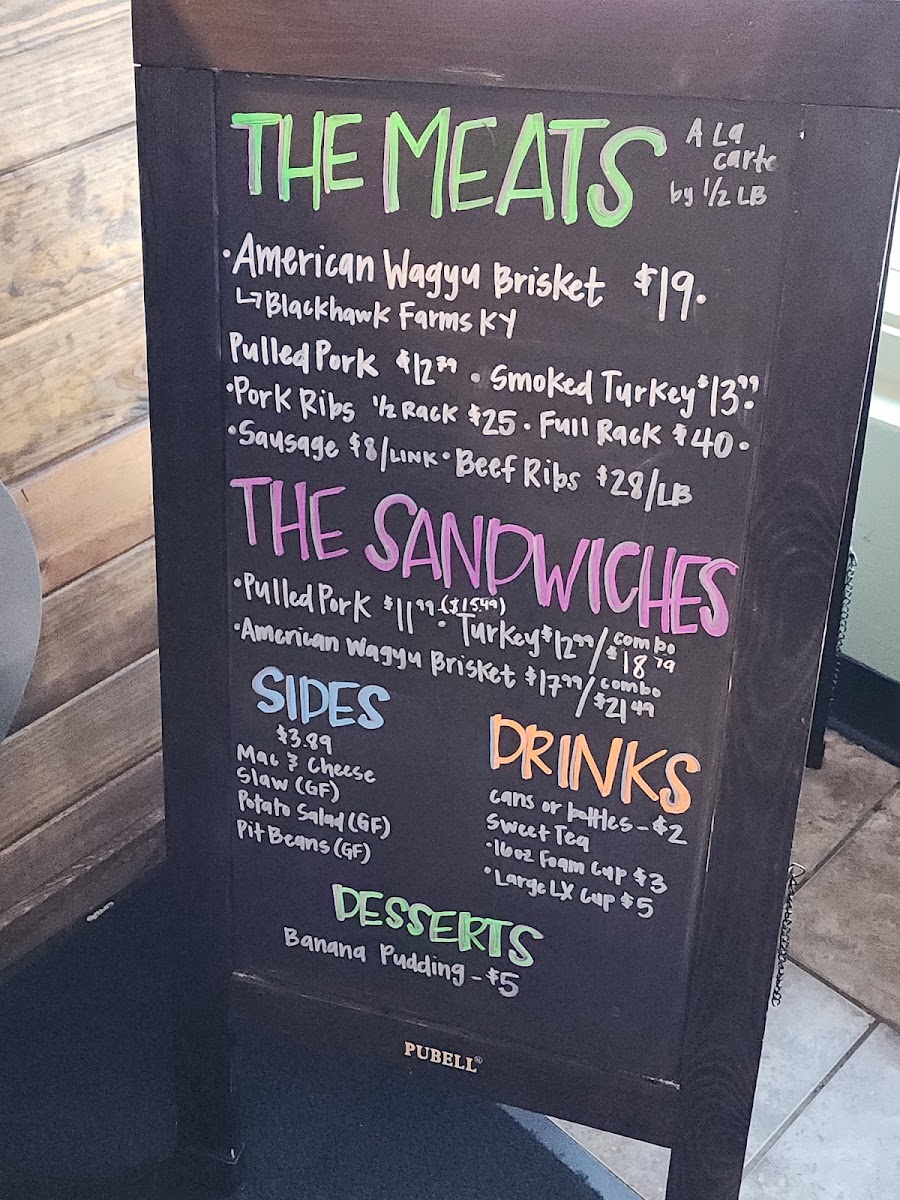 THE MEATS
A La
carte
by 1/2 LB
• American Wagyu Brisket $19.
↳ Blackhawk Farms KY
Pulled Pork $12.79 • Smoked Turkey $13.99
• Pork Ribs 1/2 Rack $25 • Full Rack $40 •
• Sausage $8/LINK • Beef Ribs $28/LB
THE SANDWICHES
• Pulled Pork $11.99 ($15.49)
• Turkey $12.99/combo $18.79
• American Wagyu Brisket $17.99/combo $21.49
SIDES
$3.89
Mac & Cheese
Slaw (GF)
Potato Salad (GF)
Pit Beans (GF)
DRINKS
cans or bottles - $2
Sweet Tea
• 16oz Foam Cup $3
• Large LX Cup $5
DESSERTS
Banana Pudding - $5
PUBELL®